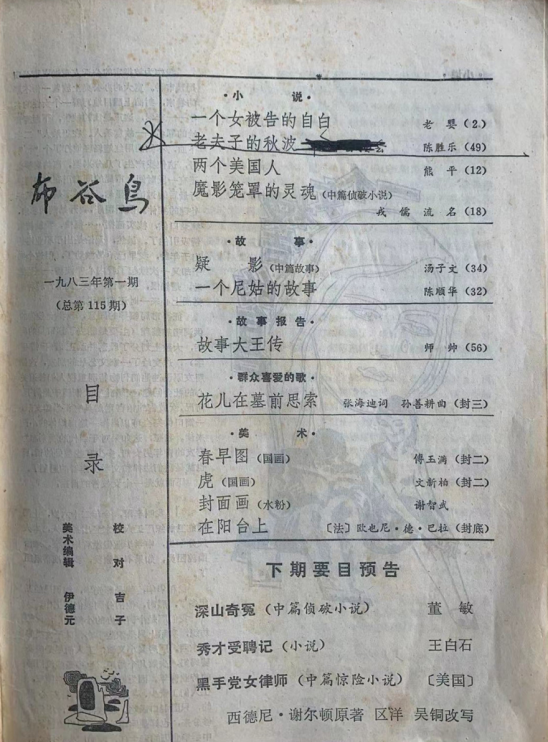 ·小说·
一个女被告的自白 老婴(2)
老夫子的秋波 陈胜乐(49)
两个美国人 熊平(12)
魔影笼罩的灵魂(中篇侦破小说)
戎儒流名(18)
布谷鸟
一九八三年第一期
(总第115期)
目录
校对 吉子
美术编辑 伊德元
·故事·
疑影(中篇故事) 汤子文(34)
一个尼姑的故事 陈顺华(32)
·故事报告·
故事大王传 师帅(56)
·群众喜爱的歌·
花儿在墓前思索 张海迪词 孙善耕曲(封三)
·美术·
春早图(国画) 傅玉满(封二)
虎(国画) 文新柏(封二)
封面画(水粉) 谢智武
在阳台上 〔法〕欧也尼·德·巴拉(封底)
下期要目预告
深山奇冤(中篇侦破小说) 董敏
秀才受聘记(小说) 王白石
黑手党女律师(中篇惊险小说)〔美国〕
西德尼·谢尔顿原著 区洋 吴铜改写